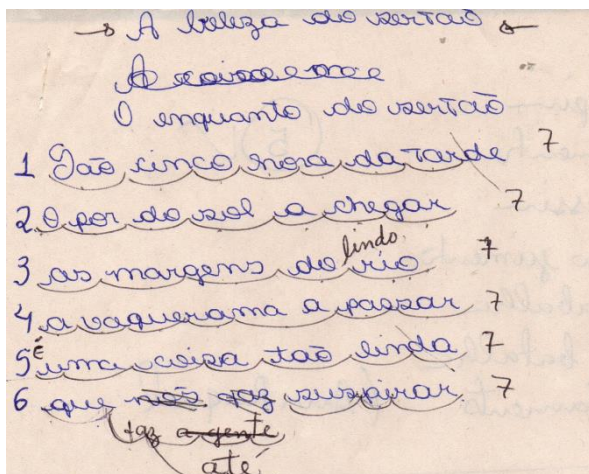 A beleza do sertão
O enquanto do sertão
1 São cinco hora da tarde 7
2 O por do sol a chegar 7
3 as margens do lindo rio 7
4 a vaquerama a passar 7
5 É uma coiza tão linda 7
6 que nós faz suspirar 7
faz a gente
até